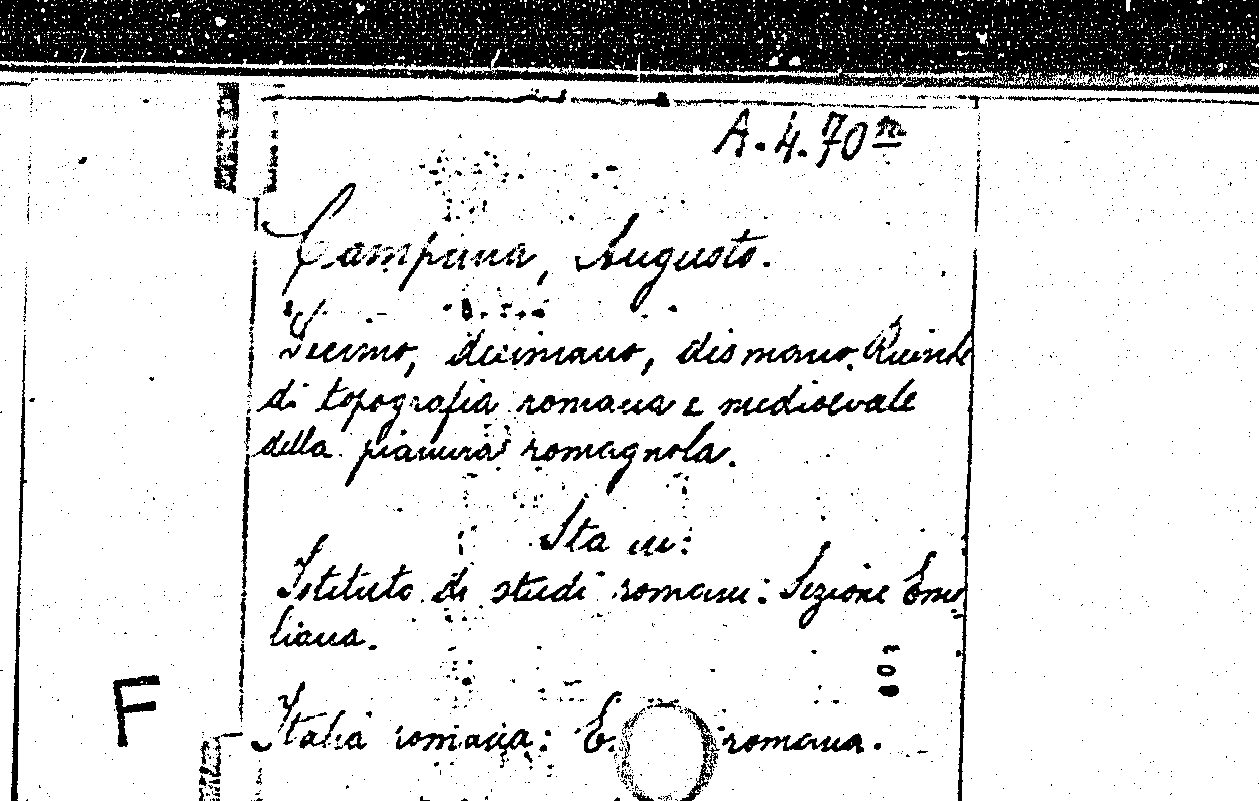 A.4.70
Campana, Augusto.
Decimo, decimano, dismano. Ricerche
di topografia romana e medioevale
della pianura romagnola.
Sta in:
Istituto di studi romani: Sezione Emi
liana.
F
Italia romana: E. romana.